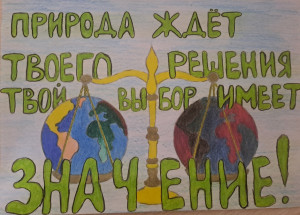 ПРИРОДА ЖДЁТ
ТВОЕГО РЕШЕНИЯ
ТВОЙ ВЫБОР ИМЕЕТ
ЗНАЧЕНИЕ!